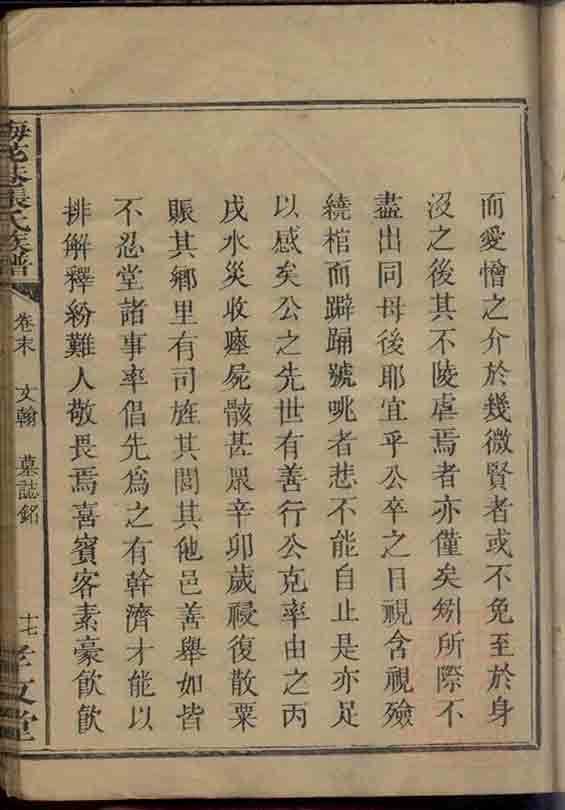 而愛憎之介於幾微賢者或不免至於身
沒之後其不陵虐焉者亦僅矣矧所際不
盡出同母後耶宜乎公卒之日視含視殮
繞棺而躃踊號咷者悲不能自止是亦足
以感矣公之先世有善行公克率由之丙
戌水災收瘞屍骸甚眾辛卯歲祲復散粟
賑其鄉里有司旌其閭其他邑善舉如皆
不忍堂諸事率倡先為之有幹濟才能以
排解釋紛難人敬畏焉喜賓客素豪飲飲
張氏族譜
卷末 文翰 墓誌銘
十七
孝友堂